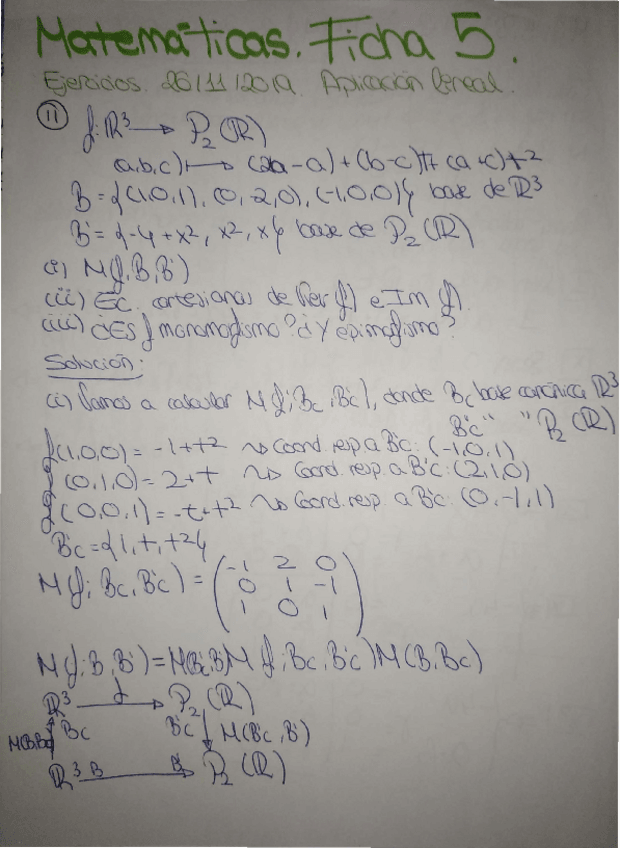 Matemáticas. Ficha 5.
Ejercicios. 26/11/2019. Aplicación lineal.
11 f: ℝ³ → P₂(ℝ)
(a,b,c) ↦ (2a-a) + (b-c)t + (a+c)t²
B = {(1,0,1), (0,-2,0), (-1,0,0)} base de ℝ³
B' = {-4+x², x², x} base de P₂(ℝ)
(i) M(f,B,B')
(ii) Ec. cartesianas de Ker(f) e Im(f).
(iii) ¿Es f monomorfismo? ¿Y epimorfismo?
Solución:
(i) Vamos a calcular M(f; Bc, B'c), donde Bc base canónica ℝ³
B'c " " P₂(ℝ)
f(1,0,0) = -1+t² ⇝ Coord. resp a B'c: (-1,0,1)
f(0,1,0) = 2+t ⇝ Coord. resp. a B'c: (2,1,0)
f(0,0,1) = -t+t² ⇝ Coord. resp. a B'c: (0,-1,1)
B'c = {1,t,t²}
M(f; Bc, B'c) = ( -1 2 0
0 1 -1
1 0 1 )
M(f; B, B') = M(B'c, B') M(f; Bc, B'c) M(B, Bc)
ℝ³ f → P₂(ℝ)
M(B,Bc) ↑ Bc B'c ↓ M(B'c, B')
ℝ³ B → B' P₂(ℝ)